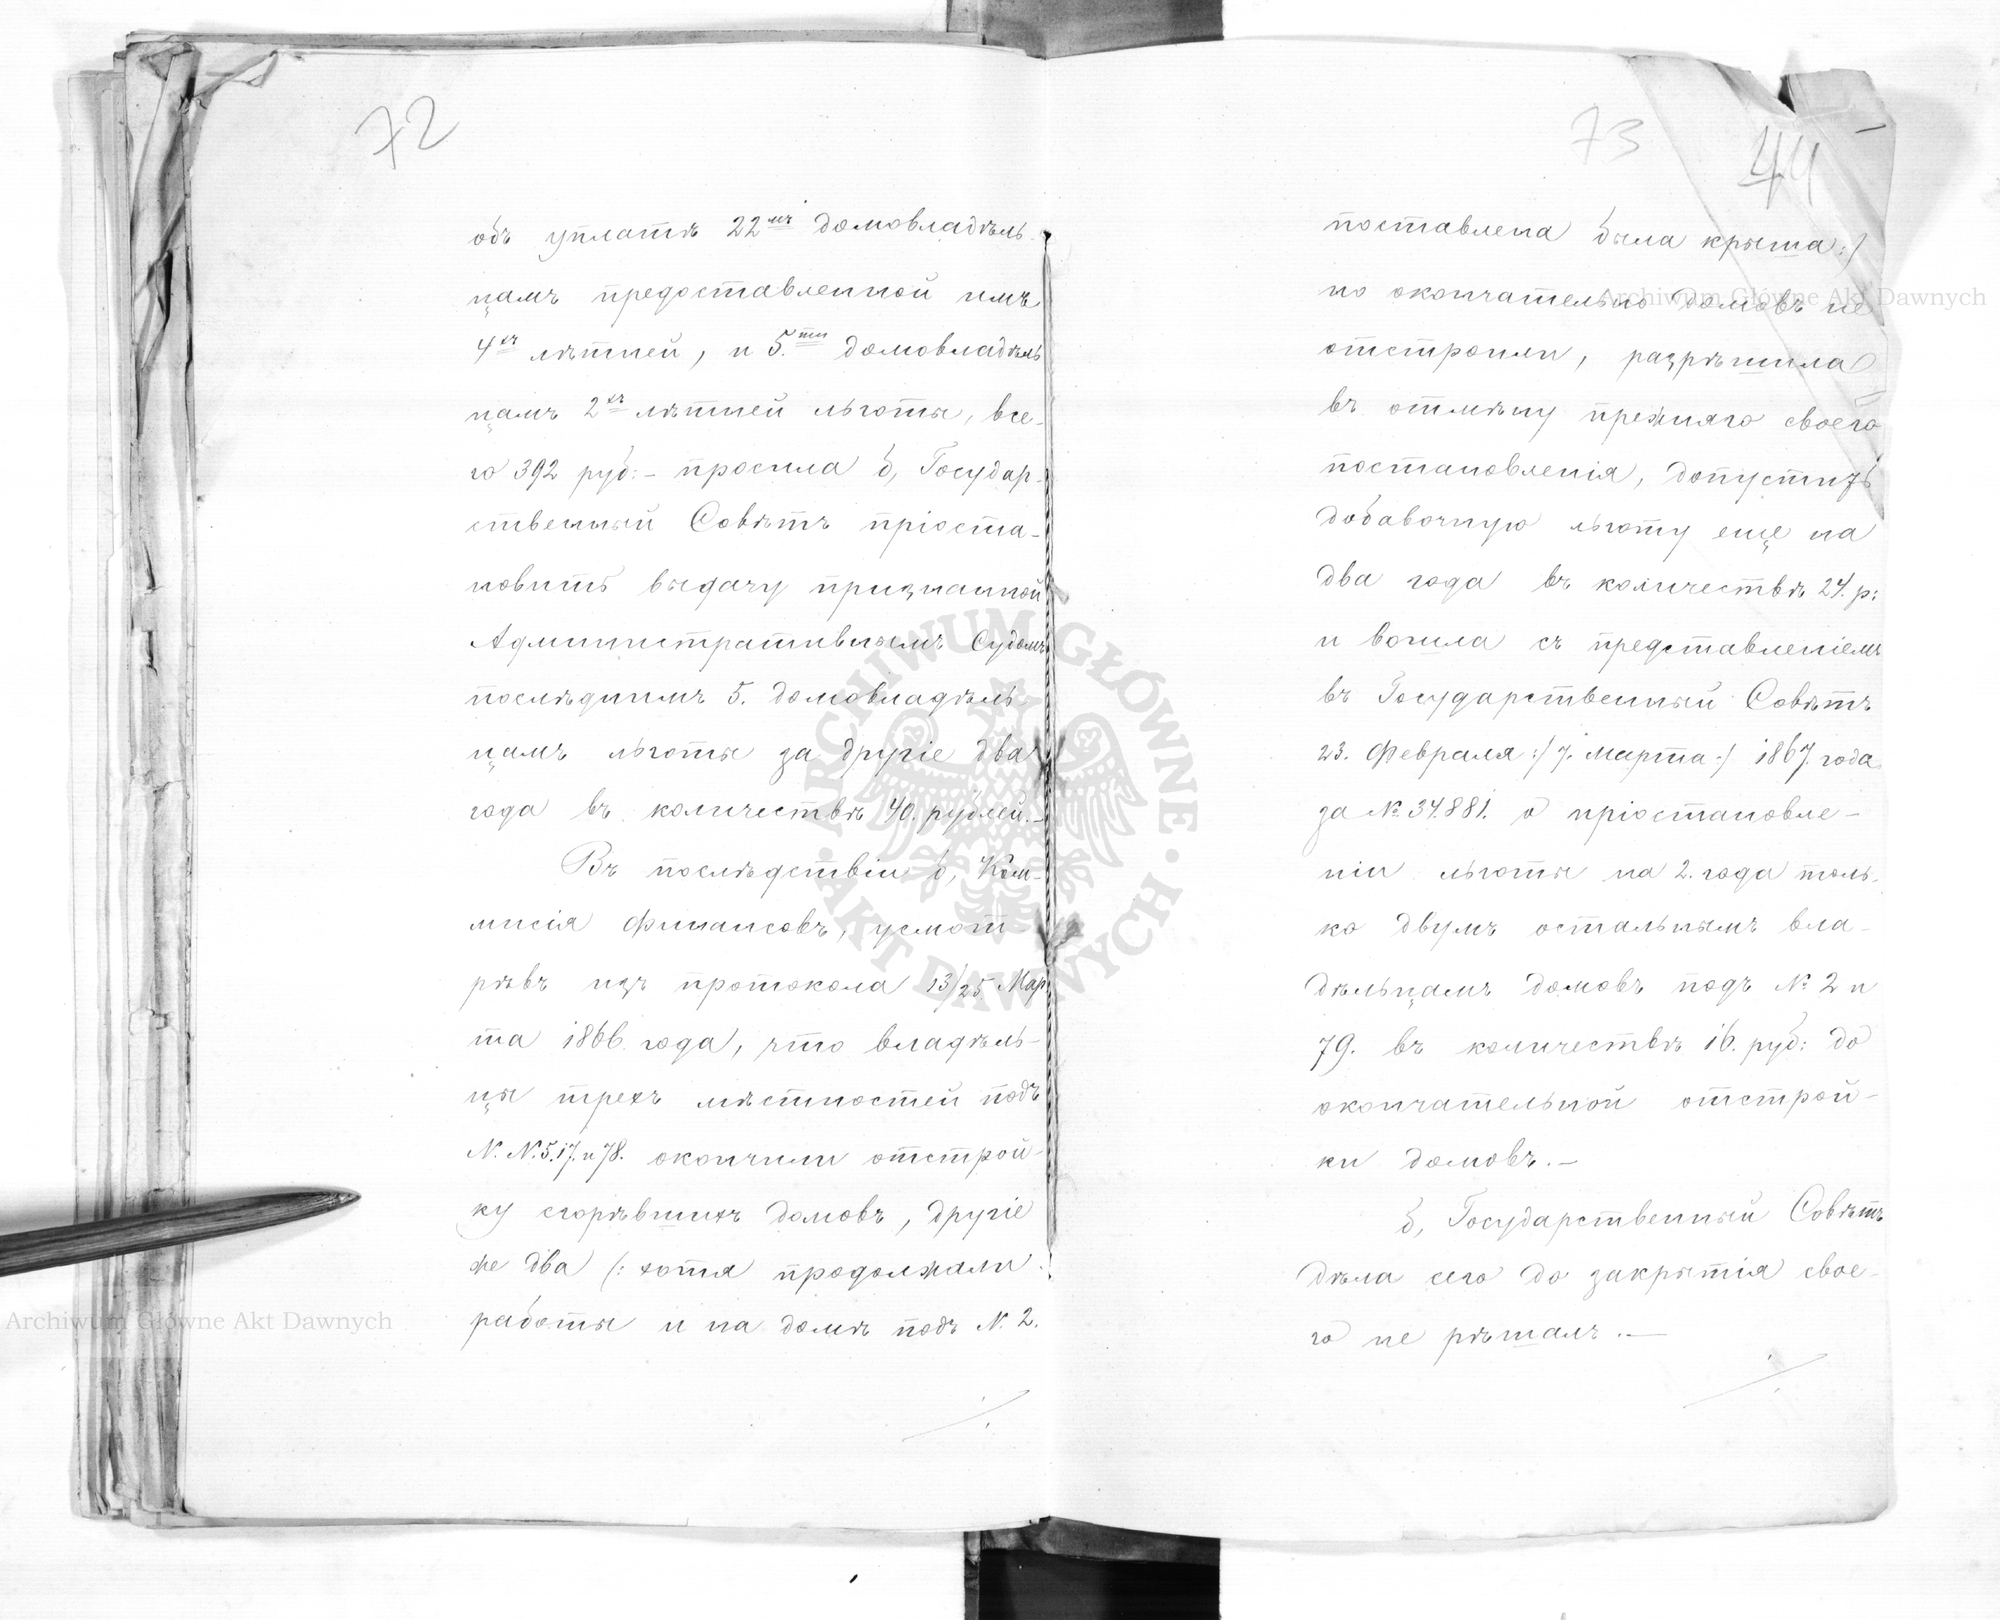 72
объ уплатѣ 22мъ домовладѣль-
цамъ предоставленной имъ
4хъ лѣтней, и 5.ти домовладѣль
цамъ 2хъ лѣтней льготы, все-
го 392 руб:- просила б, Государ-
ственный Совѣтъ пріоста-
новить выдачу признанной
Административнымъ Судомъ
послѣднимъ 5. домовладѣль-
цамъ льготы за другіе два
года въ количествѣ 40. рублей.-
Въ послѣдствіи б, Ком-
мисія Финансовъ, усмот-
рѣвъ изъ протокола 13/25. Мар
та 1866. года, что владѣль-
цы трехъ мѣстностей подъ
N. N. 5. 17. и 78. окончили отстрой-
ку сгорѣвшихъ домовъ, другіе
же два (: хотя продолжали
работы и на домѣ подъ N. 2.
73
44
поставлена была крыша :)
но окончательно домовъ не
отстроили, разрѣшила
въ отмѣну прежняго своего
постановленія, допустить
добавочную льготу еще на
два года въ количествѣ 24. р:
и вошла съ представленіемъ
въ Государственный Совѣтъ
23. Февраля :/ 7. Марта :/ 1867. года
за № 34.881. о пріостановле-
ніи льготы на 2. года толь-
ко двумъ остальнымъ вла-
дѣльцамъ домовъ подъ № 2 и
79. въ количествѣ 16. руб: до
окончательной отстрой-
ки домовъ.-
б, Государственный Совѣтъ
дѣла сего до закрытія свое-
го не рѣшалъ.-
Archiwum Główne Akt Dawnych
Archiwum Główne Akt Dawnych
ARCHIWUM GŁÓWNE AKT DAWNYCH